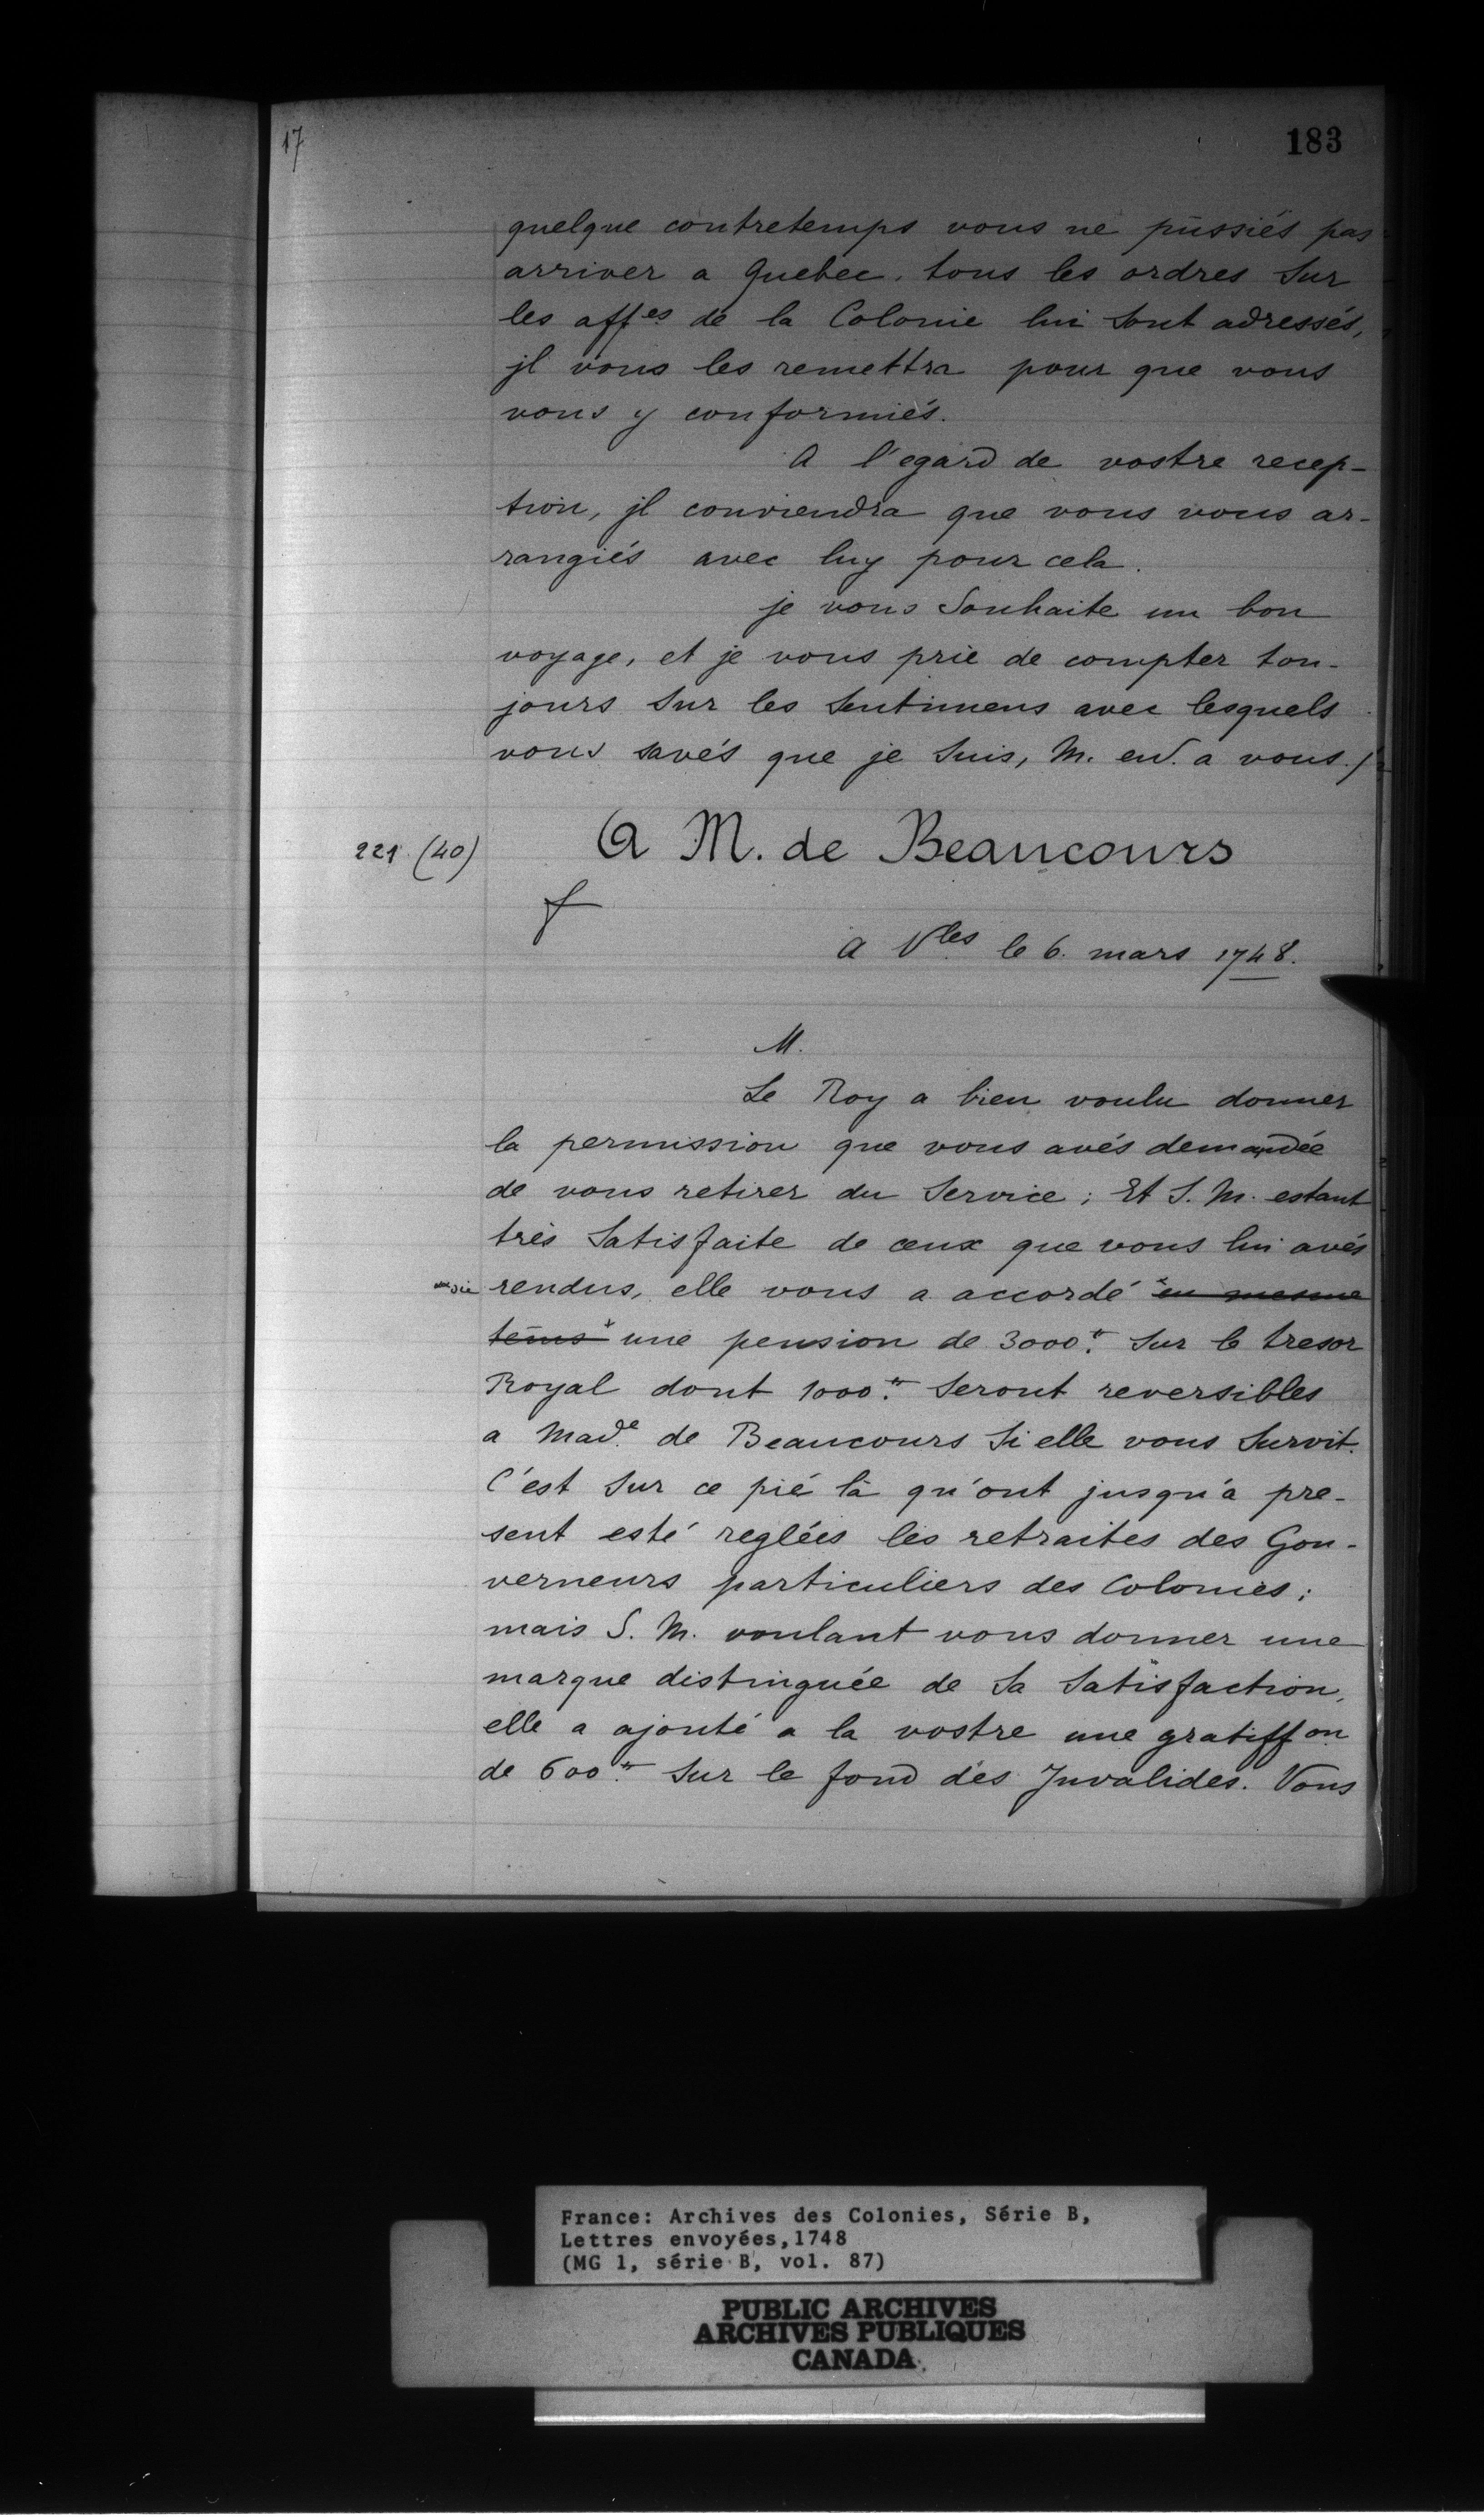 17
183
quelque contretemps vous ne pussiés pas
arriver a Quebec. tous les ordres sur
les aff.es de la Colonie lui sont adressés,
jl vous les remettra pour que vous
vous y conformiés.
A l'egard de vostre recep-
tion, jl conviendra que vous vous ar-
rangiés avec luy pour cela.
je vous souhaite un bon
voyage, et je vous prie de compter tou-
jours sur les sentimens avec lesquels
vous savés que je suis, M. en.d a vous./
221 (40)
A M. de Beaucours
f
A V.les le 6. mars 1748.
M.
Le Roy a bien voulu donner
la permission que vous avés demandée
de vous retirer du service; Et S. M. estant
très satisfaite de ceux que vous lui avés
rendus, elle vous a accordé en mesme
tems une pension de 3000.tt sur le tresor
Royal dont 1000.tt seront reversibles
a Mad.e de Beaucours si elle vous survit.
C'est sur ce pié là qu'ont jusqu'a pre-
sent esté reglées les retraites des Gou-
verneurs particuliers des Colonies;
mais S. M. voulant vous donner une
marque distinguée de sa satisfaction,
elle a ajouté a la vostre une gratiff.on
de 600.tt sur le fond des Jnvalides. Vous
France: Archives des Colonies, Série B,
Lettres envoyées,1748
(MG 1, série B, vol. 87)
PUBLIC ARCHIVES
ARCHIVES PUBLIQUES
CANADA